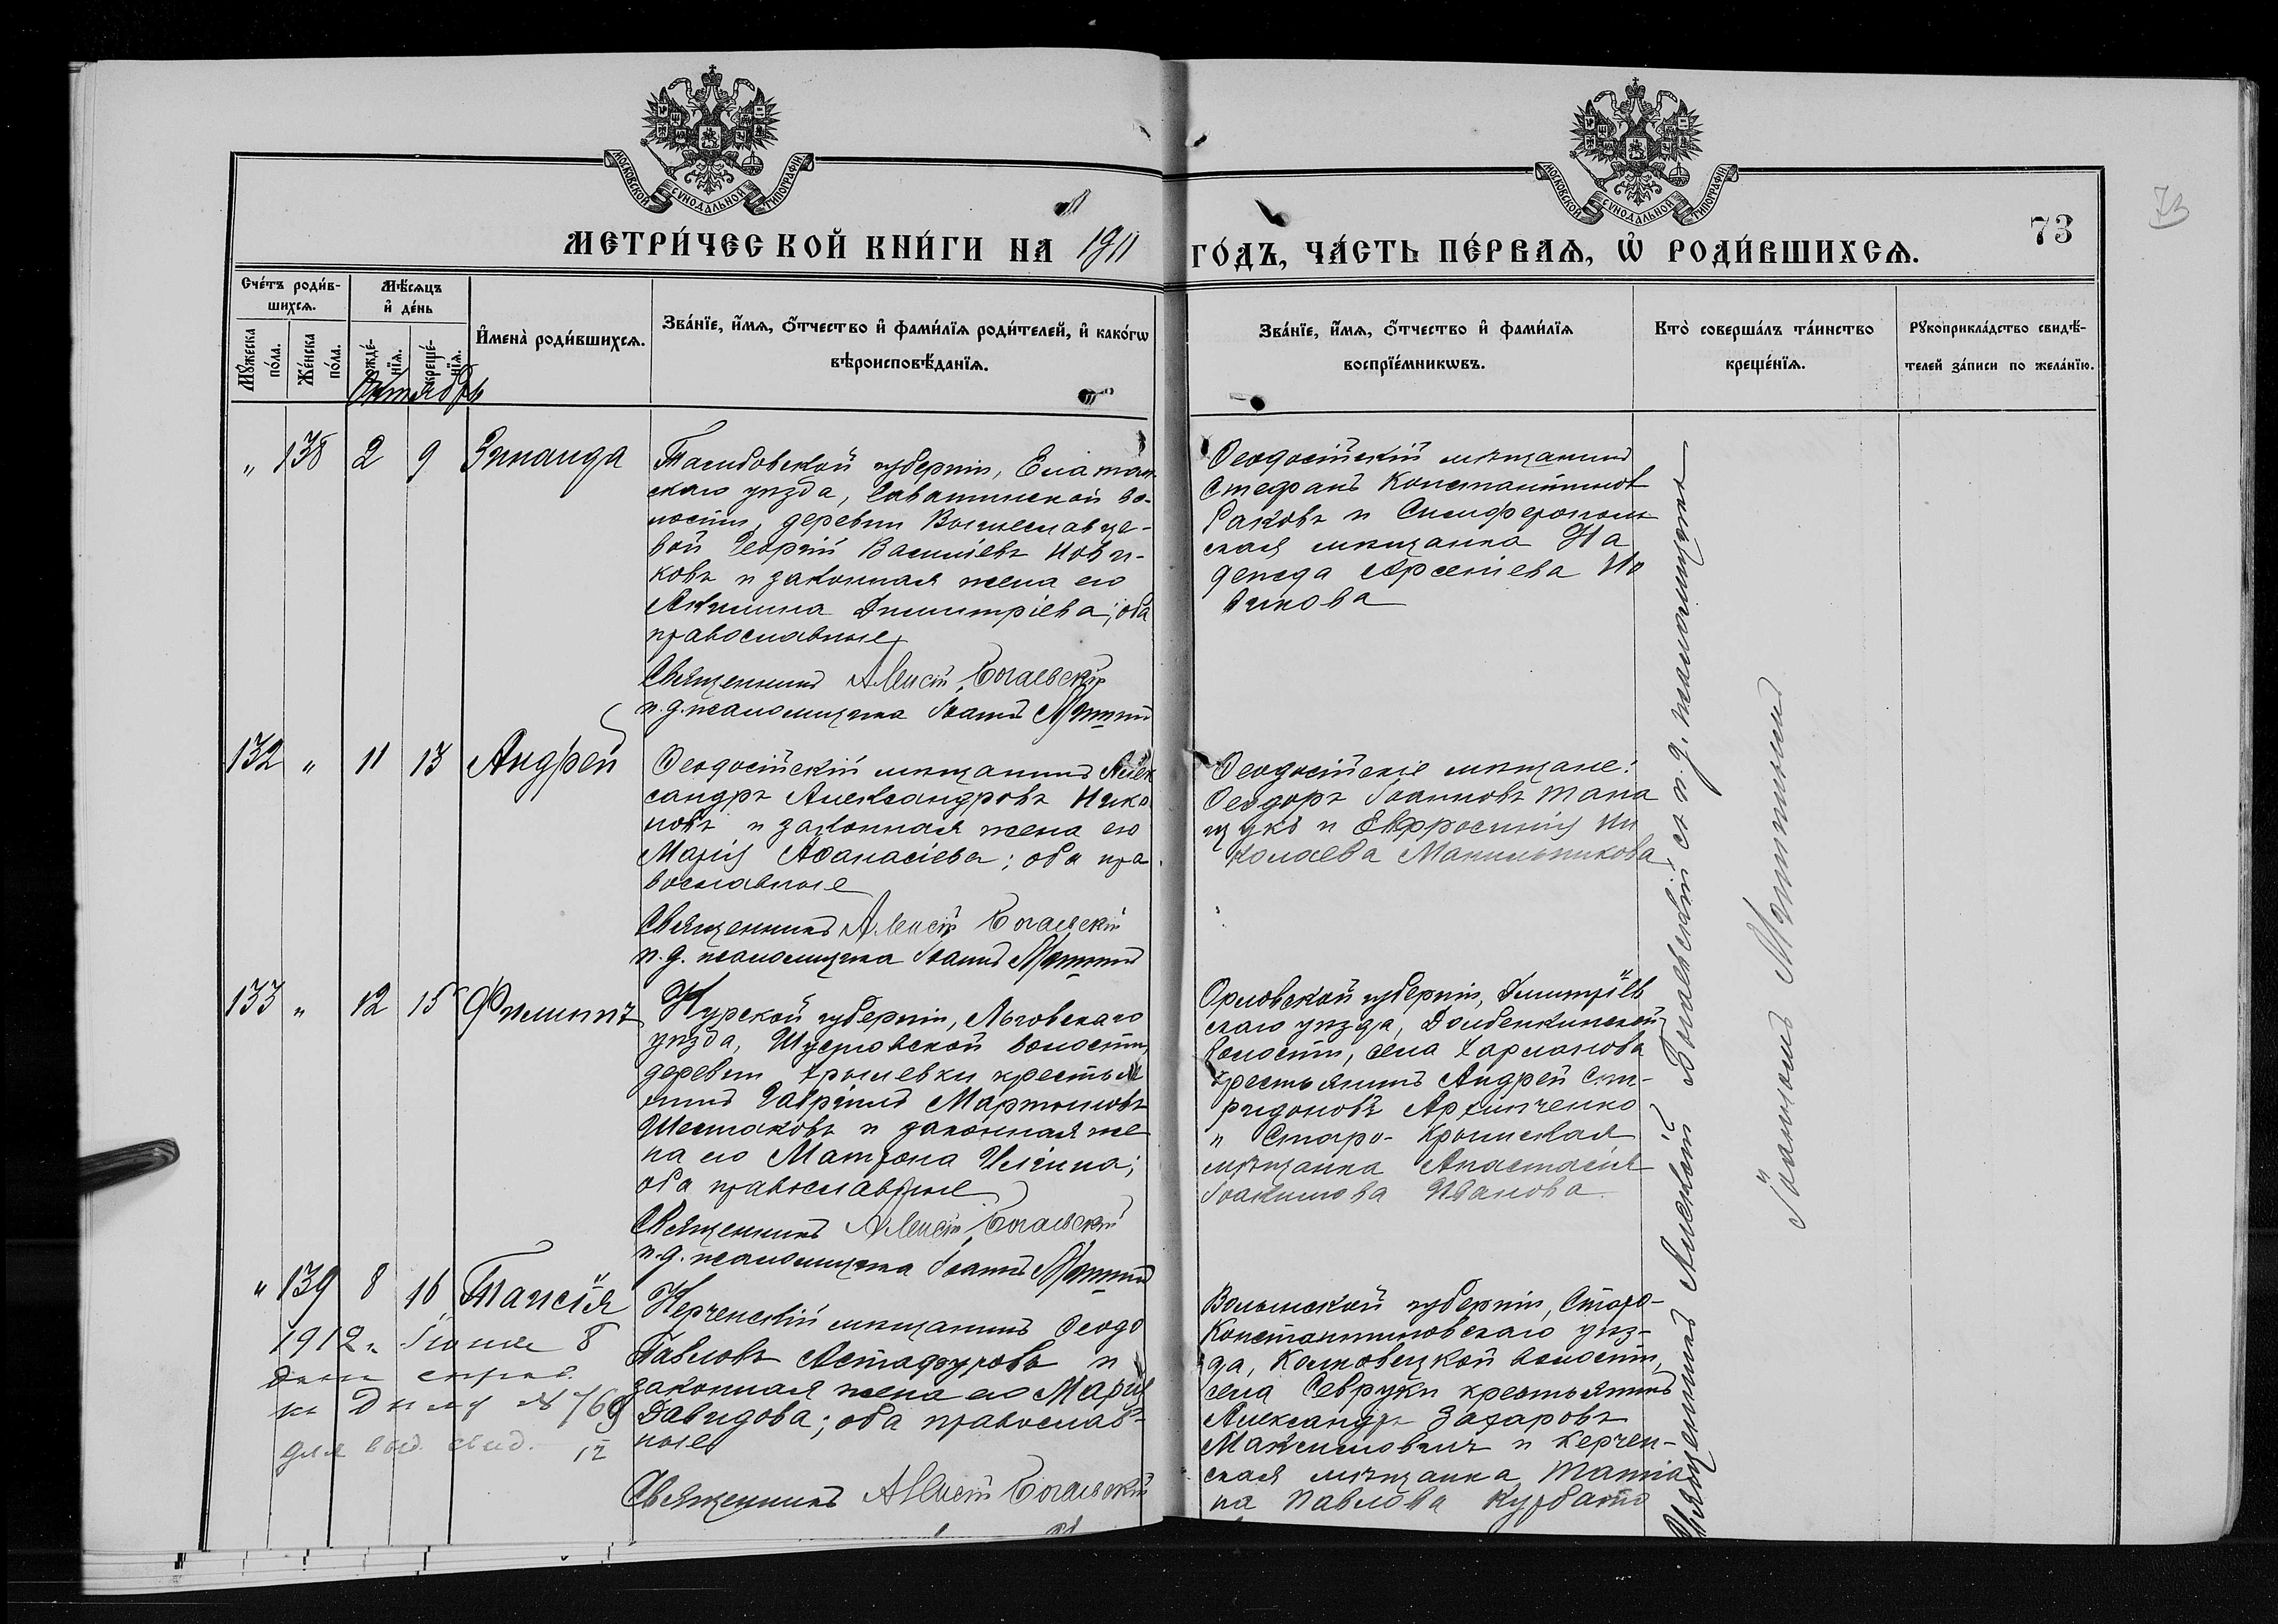 МОСКОВСКОЙ СѴНОДАЛЬНОЙ ТИПОГРАФІИ
МОСКОВСКОЙ СѴНОДАЛЬНОЙ ТИПОГРАФІИ
73
73
МЕТРИ́ЧЕСКОЙ КНИ́ГИ НА 1911 ГО́ДЪ, ЧА́СТЬ ПЕ́РВАѦ, Ѡ҆ РОДИ́ВШИХСѦ.
Сче́тъ роди́в-
шихсѧ.
Мꙋ́жеска по́ла.
Же́нска по́ла.
Мѣ́сѧцъ
и҆ де́нь
рожде́нїѧ.
креще́нїѧ.
И҆мена̀ роди́вшихсѧ.
Зва́нїе, и҆́мѧ, ѻ҆́тчество и҆ фами́лїѧ роди́телей, и҆ како́гѡ
вѣроисповѣ́данїѧ.
Зва́нїе, и҆́мѧ, ѻ҆́тчество и҆ фами́лїѧ
воспрїе́мникѡвъ.
Кто̀ соверша́лъ та́инство
креще́нїѧ.
Рꙋкоприкла́дство свидѣ́-
телей за́писи по жела́нїю.
Октябрь
" 138 2 9 Зинаида
Тамбовской губерніи, Елатом
скаго уѣзда, Саватинской во-
лости, деревни
вой Георгій Васильевъ Нови-
ковъ и законная жена его
Акилина Димитріева; оба
православные
Священникъ Алексій Богаевскій
и.д. псаломщика Іоаннъ
Ѳеодосійскій мѣщанинъ
Стефанъ Константиновъ
Раковъ и Симферополь
ская мѣщанка На
дежда Арсеніева Но
викова
132 " 11 13 Андрей
Ѳеодосійскій мѣщанинъ Алек
сандръ Александровъ Нико
новъ и законная жена его
Марія Аѳанасіева; оба пра
вославные
Священникъ Алексій Богаевскій
и.д. псаломщика Іоаннъ
Ѳеодосійскіе мѣщане:
Ѳеодоръ Іоанновъ Тана
цукъ и Евфросинія Ни
колаева Манильникова
133 " 12 15 Филиппъ
Курской губерніи, Льговскаго
уѣзда, Шустовской волости,
деревни крестья
нинъ Гавріилъ Мартиновъ
Шестаковъ и законная же
на его Матрона Ильина;
оба православные
Священникъ Алексій Богаевскій
и.д. псаломщика Іоаннъ
Орловской губерніи, Димитріев
скаго уѣзда, Долбенкинской
волости, села Харланова
крестьянинъ Андрей Спи-
ридоновъ Архипченко
и Старо-Крымская
мѣщанка Анастасія
Іоакимова Иванова.
" 139 8 16 Таисія
1912 г. Іюня 8
дана справ.
къ дѣлу № 769
для выд. свид. 12
Керченскій мѣщанинъ Ѳеодо
Павловъ Астафуровъ и
законная жена его Марія
Давидова; оба православ-
ные
Священникъ Алексій Богаевскій
Волынской губерніи, Старо-
Константиновскаго уѣз-
да, волости,
села Севруки крестьянинъ
Александръ Захаровъ
Максимовичъ и Керчен-
ская мѣщанка Татіа
на Павлова Курбато
Священникъ Алексій Богаевскій съ и.д. псаломщика
Іоанномъ